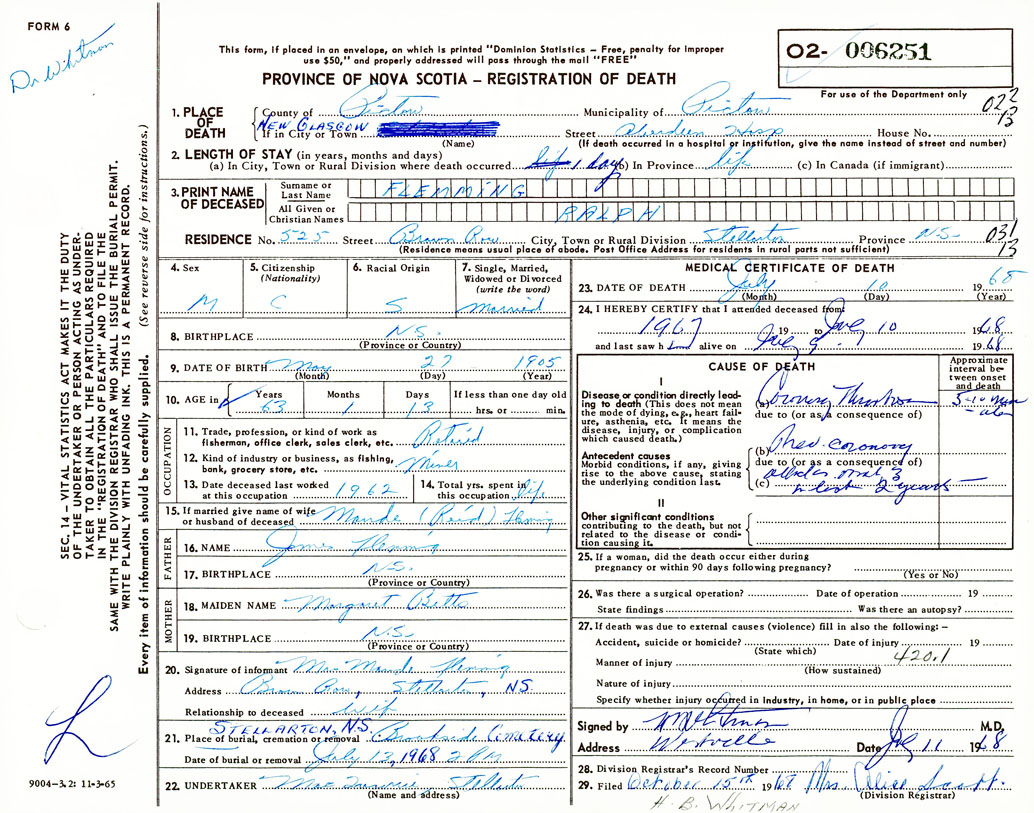 FORM 6
Dr Whitman
02- 006251
For use of the Department only
This form, if placed in an envelope, on which is printed "Dominion Statistics – Free, penalty for improper
use $50," and properly addressed will pass through the mail "FREE"
PROVINCE OF NOVA SCOTIA – REGISTRATION OF DEATH
022
13
1. PLACE OF DEATH County of Pictou Municipality of Pictou
NEW GLASGOW
If in City or Town Street Aberdeen Hosp House No.
(Name) (If death occurred in a hospital or institution, give the name instead of street and number)
2. LENGTH OF STAY (in years, months and days)
(a) In City, Town or Rural Division where death occurred 1 day (b) In Province life (c) In Canada (if immigrant)
3. PRINT NAME OF DECEASED
Surname or Last Name FLEMMING
All Given or Christian Names RALPH
RESIDENCE No. 525 Street Brown Row City, Town or Rural Division Stellarton Province NS- 031
13
(Residence means usual place of abode. Post Office Address for residents in rural parts not sufficient)
4. Sex M
5. Citizenship (Nationality) C
6. Racial Origin S
7. Single, Married, Widowed or Divorced (write the word) Married
8. BIRTHPLACE N.S.
(Province or Country)
9. DATE OF BIRTH May 27 1905
(Month) (Day) (Year)
10. AGE in Years 63 Months 1 Days 13 If less than one day old hrs. or min.
OCCUPATION
11. Trade, profession, or kind of work as fisherman, office clerk, sales clerk, etc. Retired
12. Kind of industry or business, as fishing, bank, grocery store, etc. Miner
13. Date deceased last worked at this occupation 1962
14. Total yrs. spent in this occupation life
15. If married give name of wife or husband of deceased Maude (Reid) Fleming
FATHER
16. NAME James Fleming
17. BIRTHPLACE N.S.
(Province or Country)
MOTHER
18. MAIDEN NAME Margaret Betts
19. BIRTHPLACE N.S.
(Province or Country)
20. Signature of informant Mrs Maude Fleming
Address Brown Row, Stellarton, NS.
Relationship to deceased Wife
STELLARTON, N.S.
21. Place of burial, cremation or removal Brookside Cemetery
Date of burial or removal July 13, 1968 2 PM
22. UNDERTAKER Stellarton
(Name and address)
MEDICAL CERTIFICATE OF DEATH
23. DATE OF DEATH July 10 1968
(Month) (Day) (Year)
24. I HEREBY CERTIFY that I attended deceased from
1967 19 to July 10 1968
and last saw h alive on July 9 1968
CAUSE OF DEATH
Approximate interval between onset and death
I
Disease or condition directly leading to death (This does not mean the mode of dying, e.g., heart failure, asthenia, etc. It means the disease, injury, or complication which caused death.)
(a) Coronary Thrombosis 5-10 min
due to (or as a consequence of)
Antecedent causes
Morbid conditions, if any, giving rise to the above cause, stating the underlying condition last.
(b) Prev. coronary
due to (or as a consequence of)
attacks 3
(c) in last 2 years
II
Other significant conditions
contributing to the death, but not related to the disease or condition causing it.
25. If a woman, did the death occur either during pregnancy or within 90 days following pregnancy?
(Yes or No)
26. Was there a surgical operation? Date of operation 19
State findings Was there an autopsy?
27. If death was due to external causes (violence) fill in also the following: –
Accident, suicide or homicide? Date of injury 19
(State which) 420.1
Manner of injury
(How sustained)
Nature of injury
Specify whether injury occurred in industry, in home, or in public place
Signed by Whitman M.D.
Address Westville Date July 11 1968
28. Division Registrar's Record Number
29. Filed October 15th 1968 Mrs. Alice Scott.
(Division Registrar)
H. B. WHITMAN
SEC. 14 – VITAL STATISTICS ACT MAKES IT THE DUTY
OF THE UNDERTAKER OR PERSON ACTING AS UNDER-
TAKER TO OBTAIN ALL THE PARTICULARS REQUIRED
IN THE "REGISTRATION OF DEATH" AND TO FILE THE
SAME WITH THE DIVISION REGISTRAR WHO SHALL ISSUE THE BURIAL PERMIT.
WRITE PLAINLY WITH UNFADING INK. THIS IS A PERMANENT RECORD.
Every item of information should be carefully supplied. (See reverse side for instructions.)
9004–3.2: 11-3-65